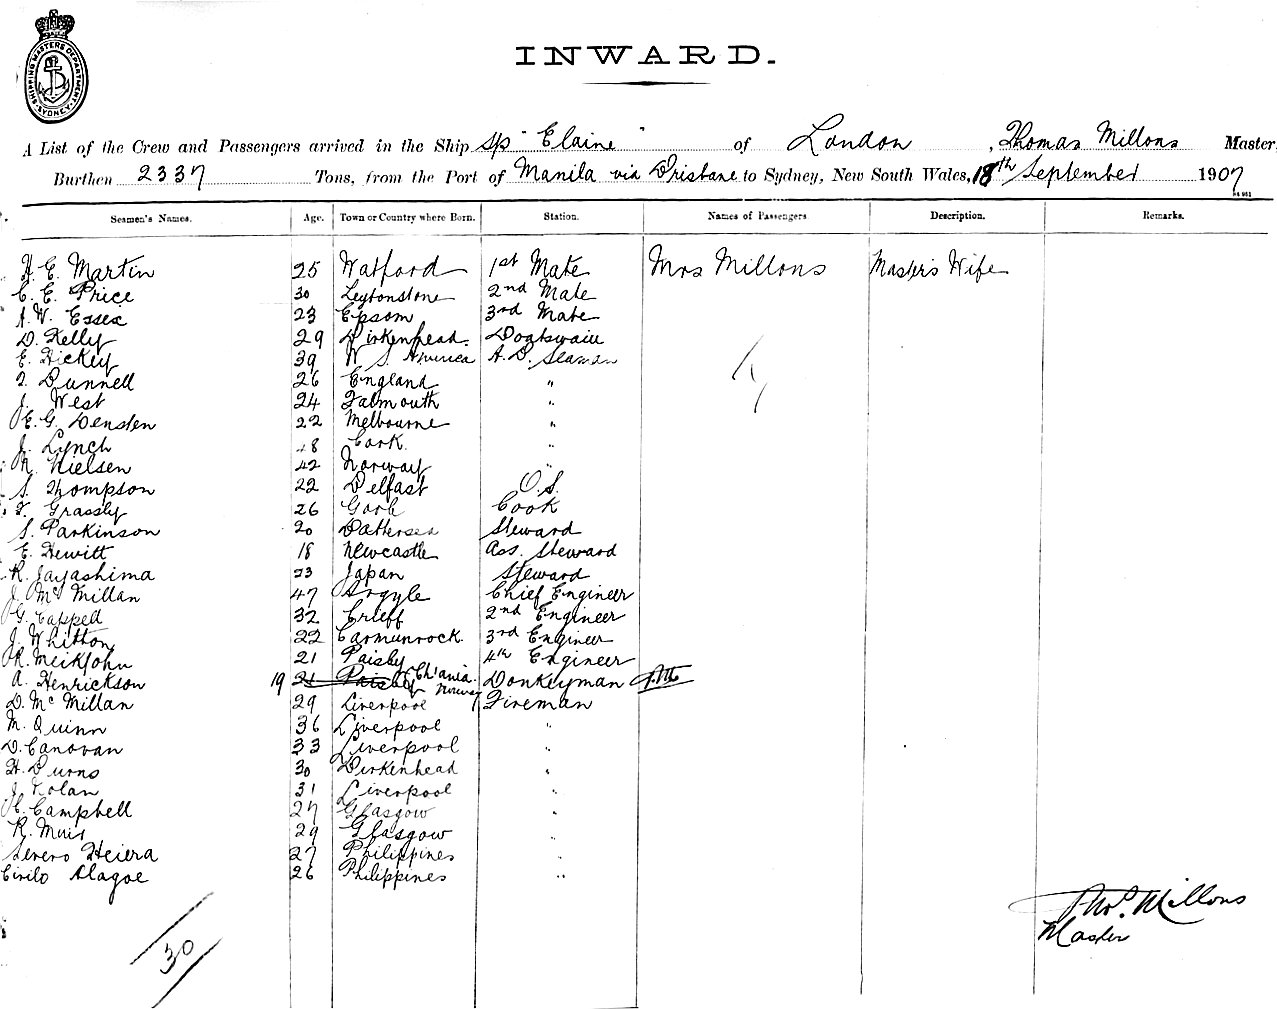 SHIPPING MASTERS DEPARTMENT SYDNEY
INWARD.
A List of the Crew and Passengers arrived in the Ship s/s "Elaine" of London, Thomas Millons Master
Burthen 2337 Tons, from the Port of Manila via Brisbane to Sydney, New South Wales, 18th September 1907
Seamen's Names. Age. Town or Country where Born. Station. Names of Passengers Description. Remarks.
H. E. Martin 25 Watford 1st Mate Mrs Millons Master's Wife
C. E. Price 30 Leytonstone 2nd Mate
A. W. Essex 23 Epsom 3rd Mate
D. Kelly 29 Birkenhead. Boatswain
E. Hickey 39 W. S. America A. B. Seaman
Bunnell 26 England "
J. West 24 Falmouth "
E. G. Densten 22 Melbourne "
J. Lynch 48 Cork. "
N. Nielsen 42 Norway "
S. Thompson 22 Belfast O.S.
Grassby 26 Goole Cook
S. Parkinson 20 Battersea Steward
E. Hewitt 18 Newcastle Ass. Steward
K. Jayashima 23 Japan Steward
J. Mc Millan 47 Argyle Chief Engineer
G. Cappell 32 Crieff 2nd Engineer
J. Whitton 22 Carmunrock. 3rd Engineer
R. Meikjohn 21 Paisley 4th Engineer
A. Henrickson 19 21 Paisley Ch'ania Norway Donkeyman
D. Mc Millan 29 Liverpool Fireman
M. Quinn 36 Liverpool "
D. Canovan 33 Liverpool "
H. Burns 30 Birkenhead "
J. Nolan 31 Liverpool "
C. Campbell 27 Glasgow "
R. Muir 29 Glasgow "
Severo Heiera 27 Philippines "
Cirilo Alagoe 26 Philippines "
Thos. Millons
Master
30